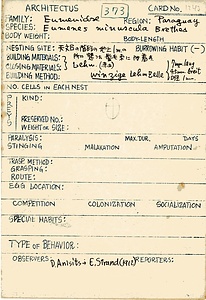 ARCHITECTUS 373 CARD NO.
FAMILY: Eumenidae REGION: Paraguay
SPECIES: Eumenes minuscula Brethes
BODY WEIGHT: BODY-LENGTH
NESTING SITE: BURROWING HABIT (-)
BUILDING MATERIALS:
CLOSING MATERIALS: Lehm.
BUILDING METHOD: winzige Lehm Zelle
NO. CELLS IN EACH NEST
PREY
KIND:
PRESERVED NO.:
WEIGHT OR SIZE:
PARALYSIS: MAX. DUR. DAYS
STINGING MALAXATION AMPUTATION
TRASP. METHOD:
GRASPING:
ROUTE:
EGG LOCATION:
COMPETION COLONIZATION SOCIALIZATION
SPECIAL HABITS:
TYPE OF BEHAVIOR:
OBSERVERS: REPORTERS:
D. Anisits → E. Strand (1912)